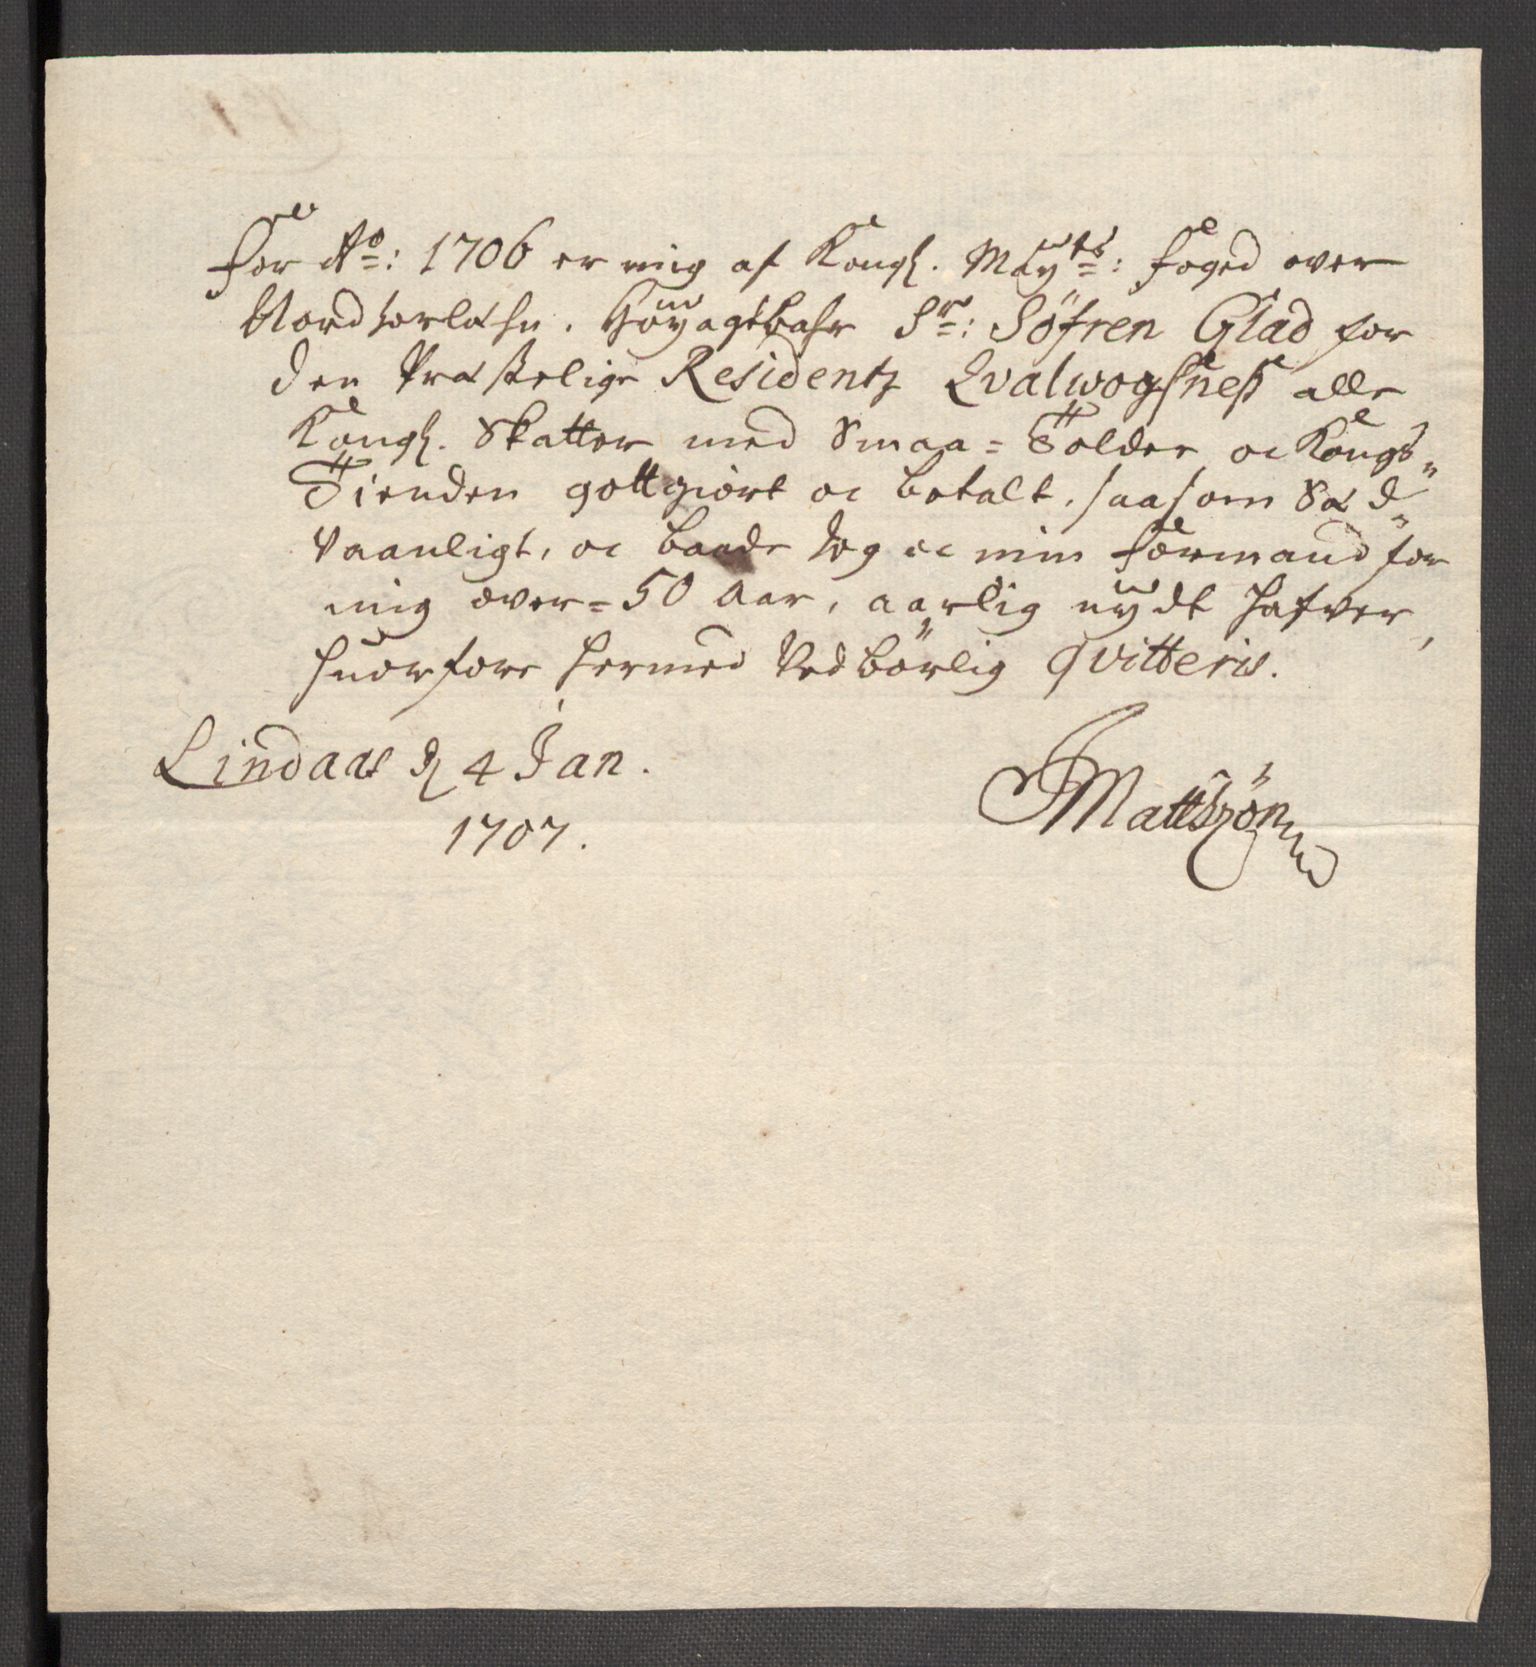 For Ao: 1706 er mig af Kongl. Maÿts: foged over
Nordhorlehn. Höÿagtbahr Sr: Söfren Glad for
den Præstelige Residentz Qvalwogsness alle
Kongl. Skatter med Smaa=Tolder oc Kongs„
Tienden gottgiort oc betalt, saasom Sæd„
vaanligt, oc baade Jeg oc min Formand for
mig over=50 Aar, aarlig nÿdt hafver,
huorfore hermed Vedbörlig qvitteris.
Lindaas d 4 Jan.
1707.
JMattszön